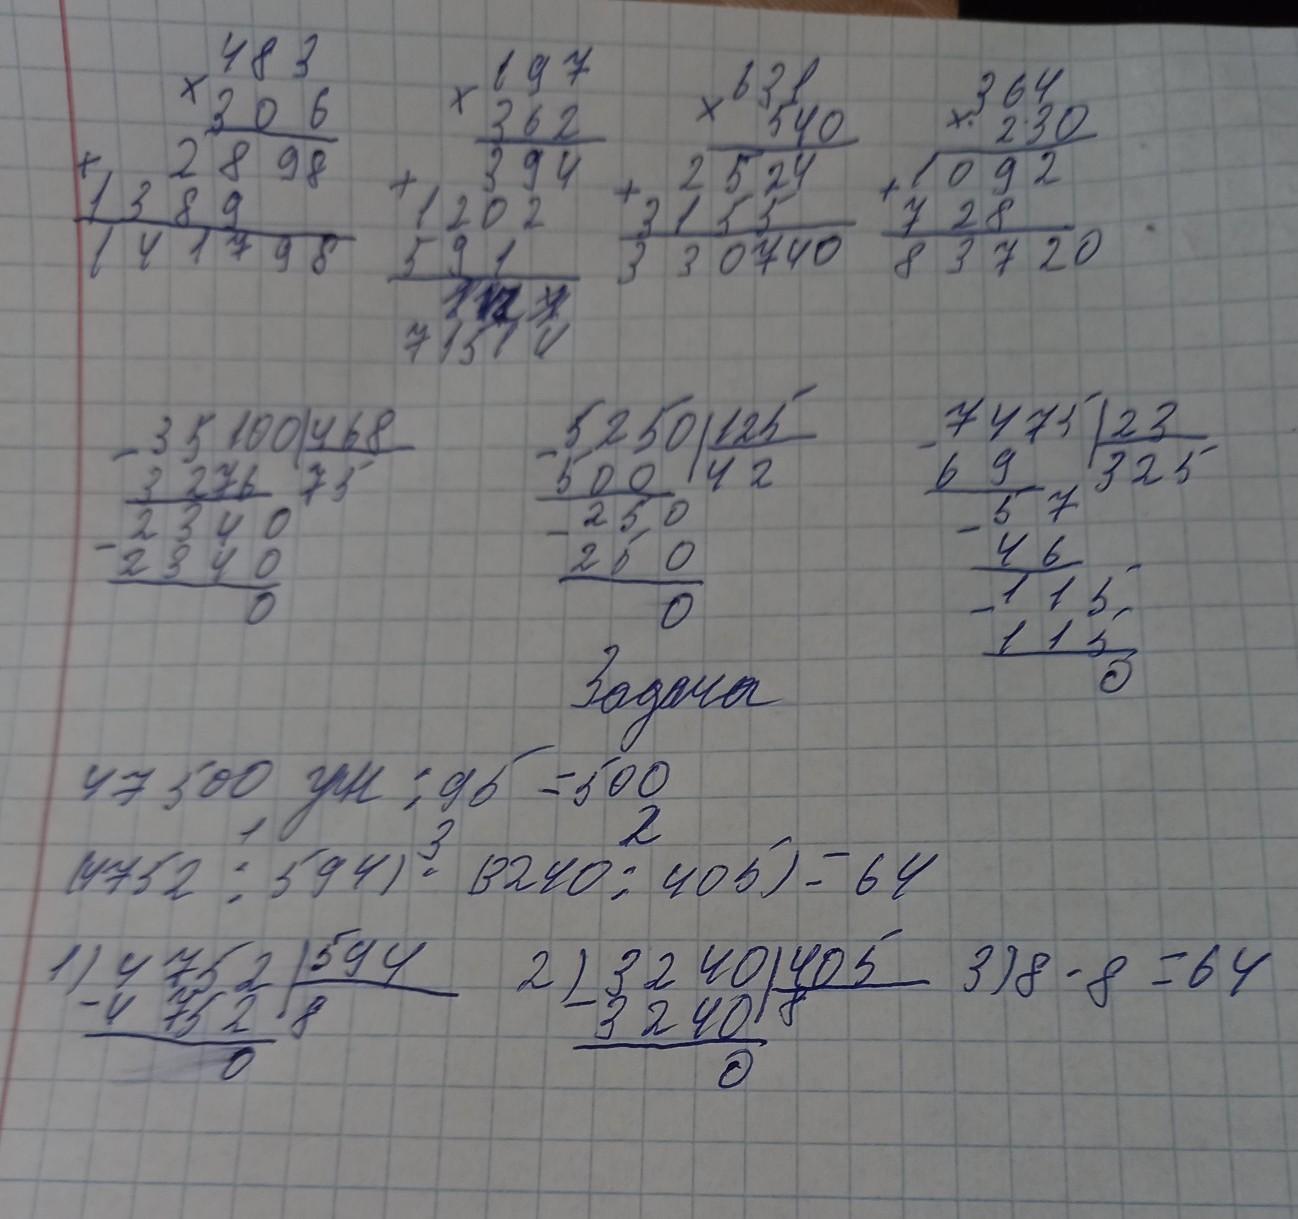 483 197 631 364
× 306 × 362 × 540 × 230
2898 394 2524 1092
+ 1389 + 1202 + 3155 + 728
141798 591 330740 83720
71514
- 35100 | 468 - 5250 | 125 - 7475 | 23
3276 75 500 42 69 325
- 2340 - 250 - 57
2340 250 46
0 0 - 115
115
0
Задача
47500 : 95 = 500
1 3 2
(4752 : 594) · (3240 : 405) = 64
1) 4752 | 594 2) 3240 | 405 3) 8 · 8 = 64
- 4752 8 - 3240 8
0 0